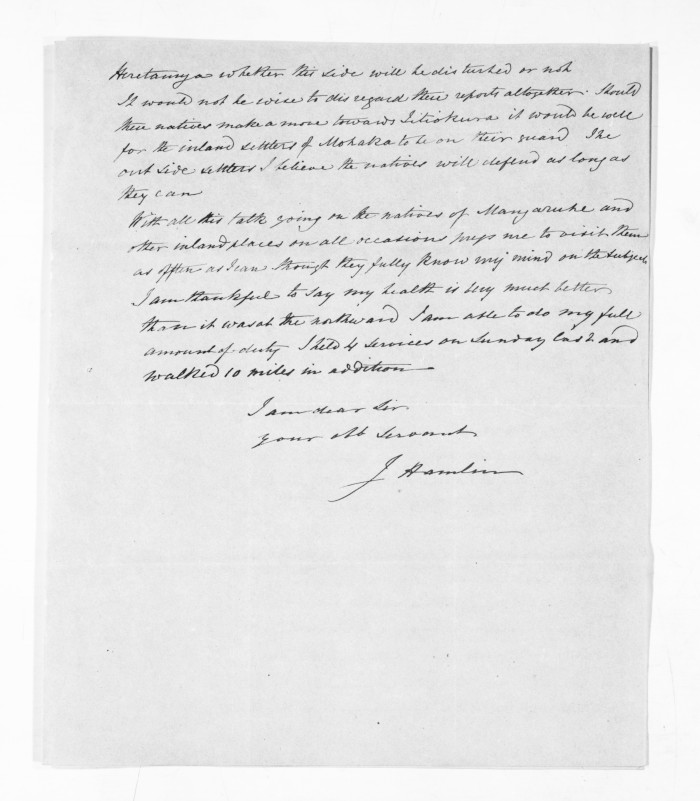 Heretaunga whether this side will be disturbed or not
It would not be wise to disregard these reports altogether. Should
these natives make a move towards Titiokura it would be well
for the inland settlers of Mohaka to be on their guard The
out side settlers I believe the natives will defend as long as
they can
With all this talk going on the natives of Mangaruhe and
other inland places on all occasions me to visit them
as often as I can though they fully know my mind on the subject
I am thankful to say my health is very much better
than it was at the north and I am able to do my full
amount of duty I held 4 services on Sunday last and
walked 10 miles in addition
I am dear Sir
your obt servant
J Hamlin